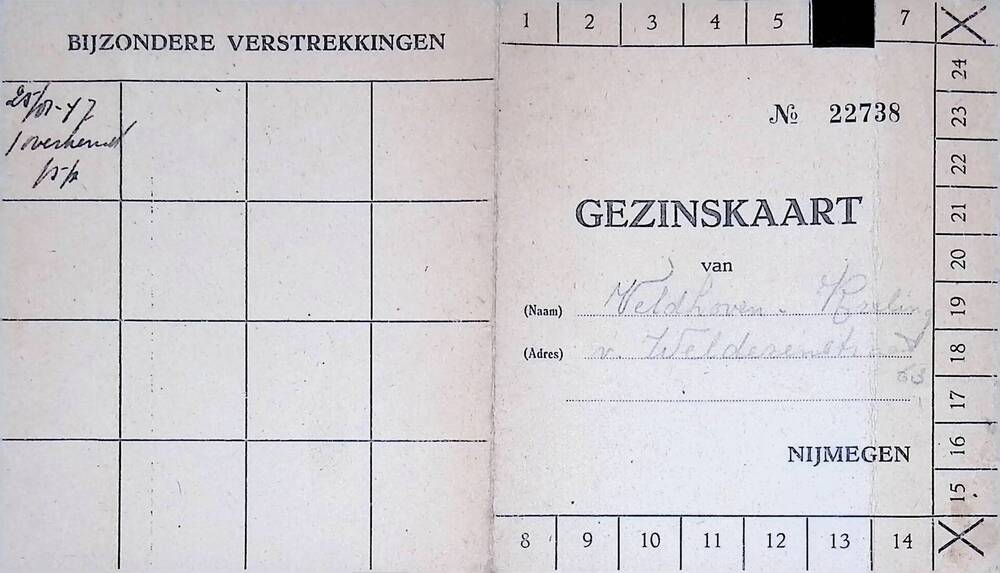 BIJZONDERE VERSTREKKINGEN
1 overhemd
1 2 3 4 5 7
№ 22738
GEZINSKAART
van
(Naam) Veldhoven -
(Adres) v. Welderenstraat
63
NIJMEGEN
24
23
22
21
20
19
18
17
16
15
8 9 10 11 12 13 14